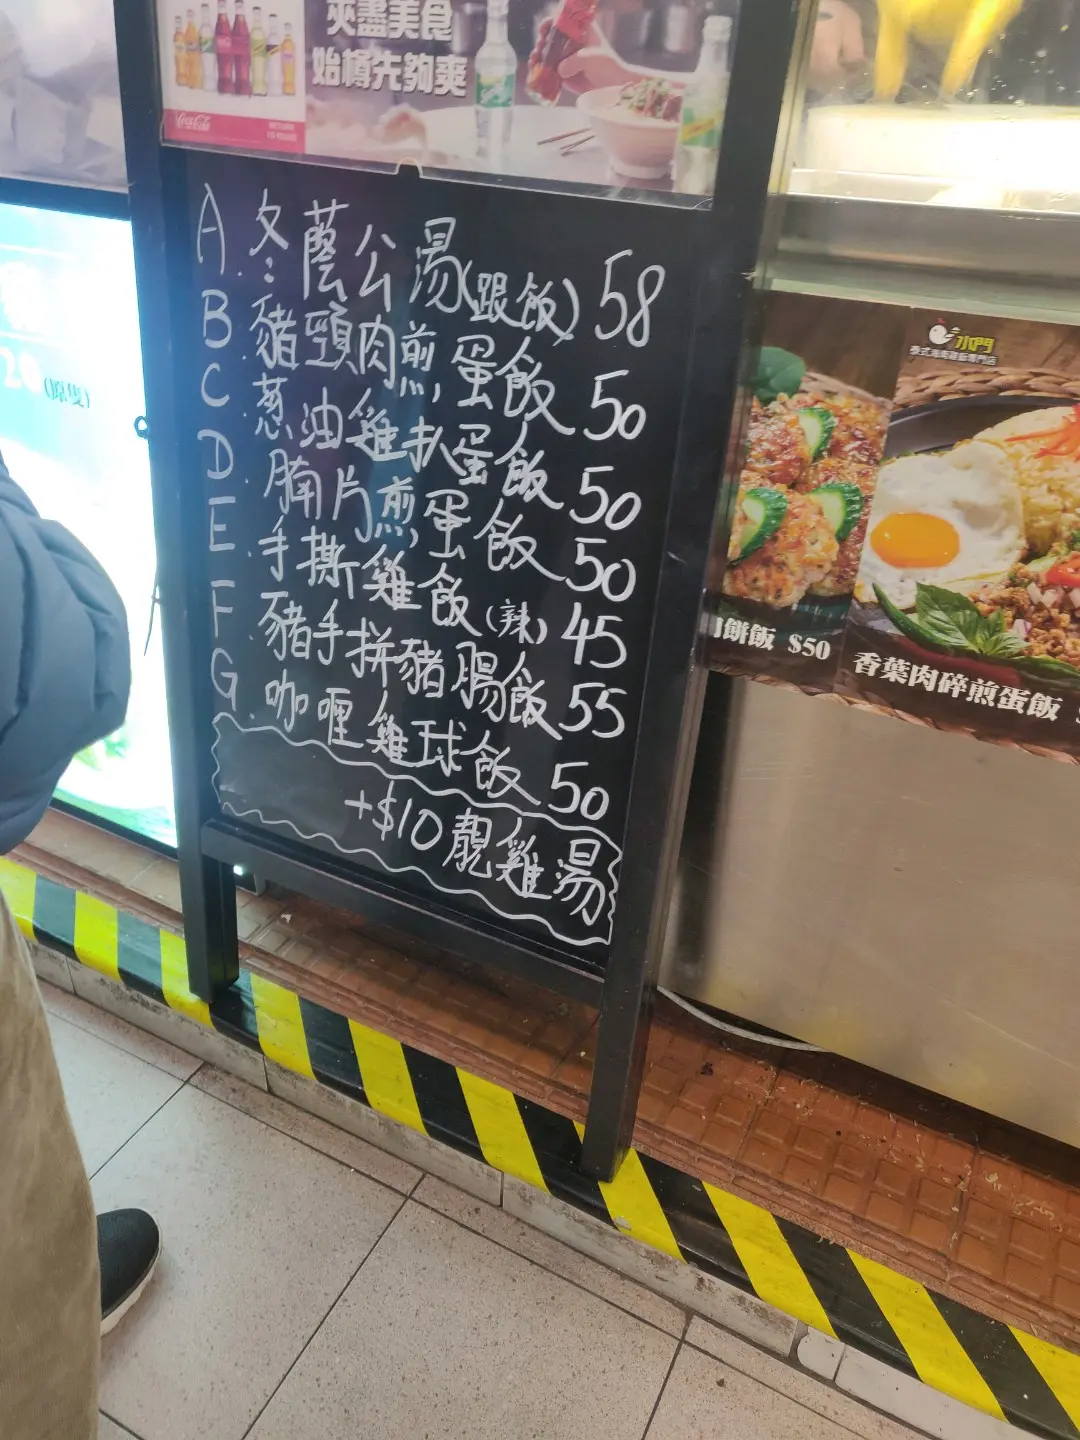 夾盡美食
始樽先夠爽
Coca-Cola
A. 冬蔭公湯(跟飯) 58
B. 豬頸肉煎蛋飯 50
C. 葱油雞扒蛋飯 50
D. 腩片煎蛋飯 50
E. 手撕雞飯(辣) 45
F. 豬手拼豬腸飯 55
G. 咖喱雞球飯 50
+$10 靚雞湯
水門
泰式海南雞飯專門店
餅飯 $50
香葉肉碎煎蛋飯
20